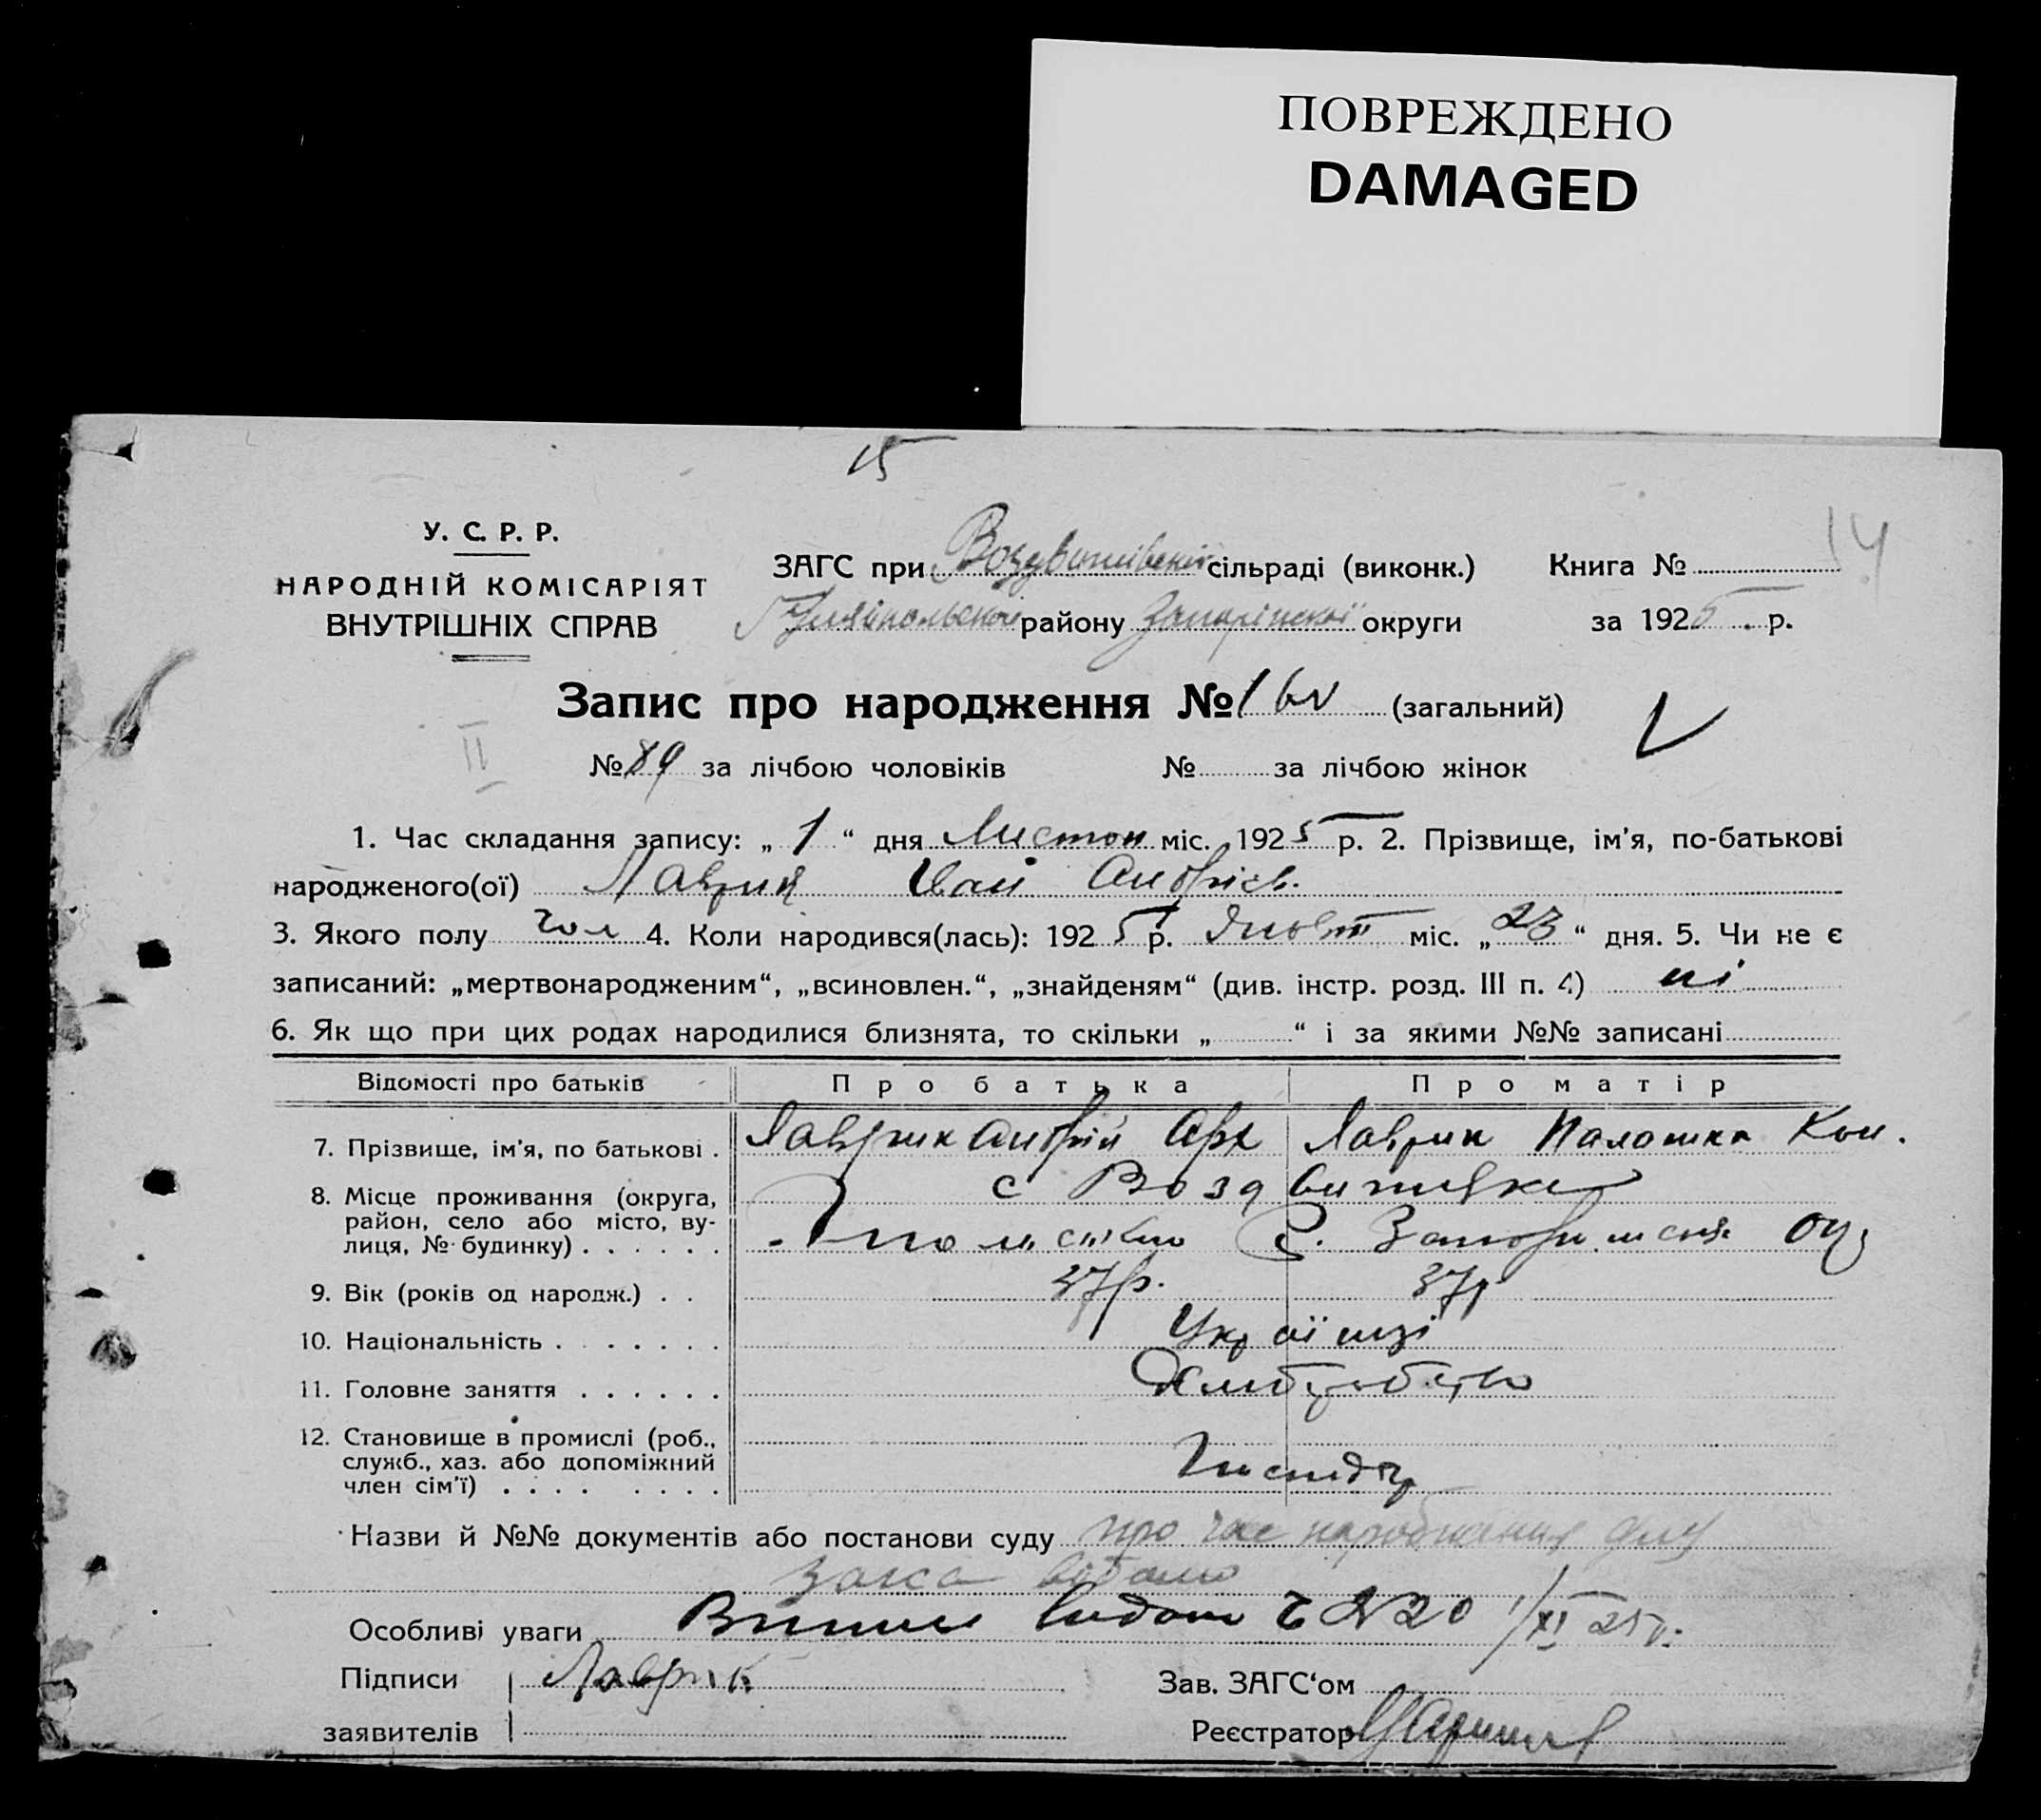 ПОВРЕЖДЕНО
DAMAGED
15
14
У. С. Р. Р.
НАРОДНІЙ КОМІСАРІЯТ
ВНУТРІШНІХ СПРАВ
ЗАГС при Воздвижівській сільраді (виконк.) Книга №
району Запоріжської округи за 1925 р.
Запис про народження № (загальний)
II
№ 89 за лічбою чоловіків № за лічбою жінок
1. Час складання запису: „ 1 “ дня Листоп міс. 1925 р. 2. Прізвище, ім’я, по-батькові
народженого(ої) Лаврик Іван Андрієв.
3. Якого полу чол 4. Коли народився(лась): 1925 р. Жовт міс. „ 23 “ дня. 5. Чи не є
записаний: „мертвонародженим“, „всиновлен.“, „знайденям“ (див. інстр. розд. III п. 4) ні
6. Як що при цих родах народилися близнята, то скільки „ “ і за якими №№ записані
Відомості про батьків Про батька Про матір
7. Прізвище, ім’я, по батькові . Лаврик Андрій Арх Лаврик Палажка Кон.
8. Місце проживання (округа,
район, село або місто, ву-
лиця, № будинку) . . . . . .
с Воздвижевка
Р. Запоріжська Окр
9. Вік (років од народж.) . . 37р. 37р
10. Національність . . . . . . . Українці
11. Головне заняття . . . . . . Хліборобство
12. Становище в промислі (роб.,
служб., хаз. або допоміжний
член сім’ї) . . . . . . . .
Господар
Назви й №№ документів або постанови суду про час народження
видано
Особливі уваги видано № 20 1/XI 25р.
Підписи Лаврик Зав. ЗАГС‘ом
заявителів Реєстратор